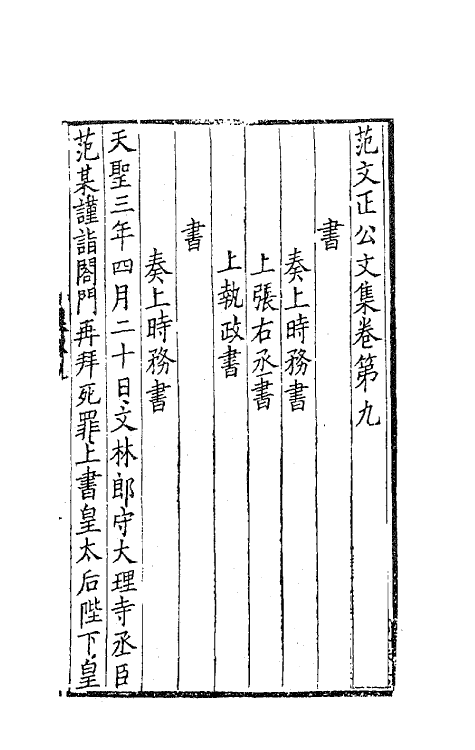 范文正公文集卷第九
書
奏上時務書
上張右丞書
上執政書
書
奏上時務書
天聖三年四月二十日文林郎守大理寺丞臣
范某謹詣閤門再拜死罪上書皇太后陛下皇